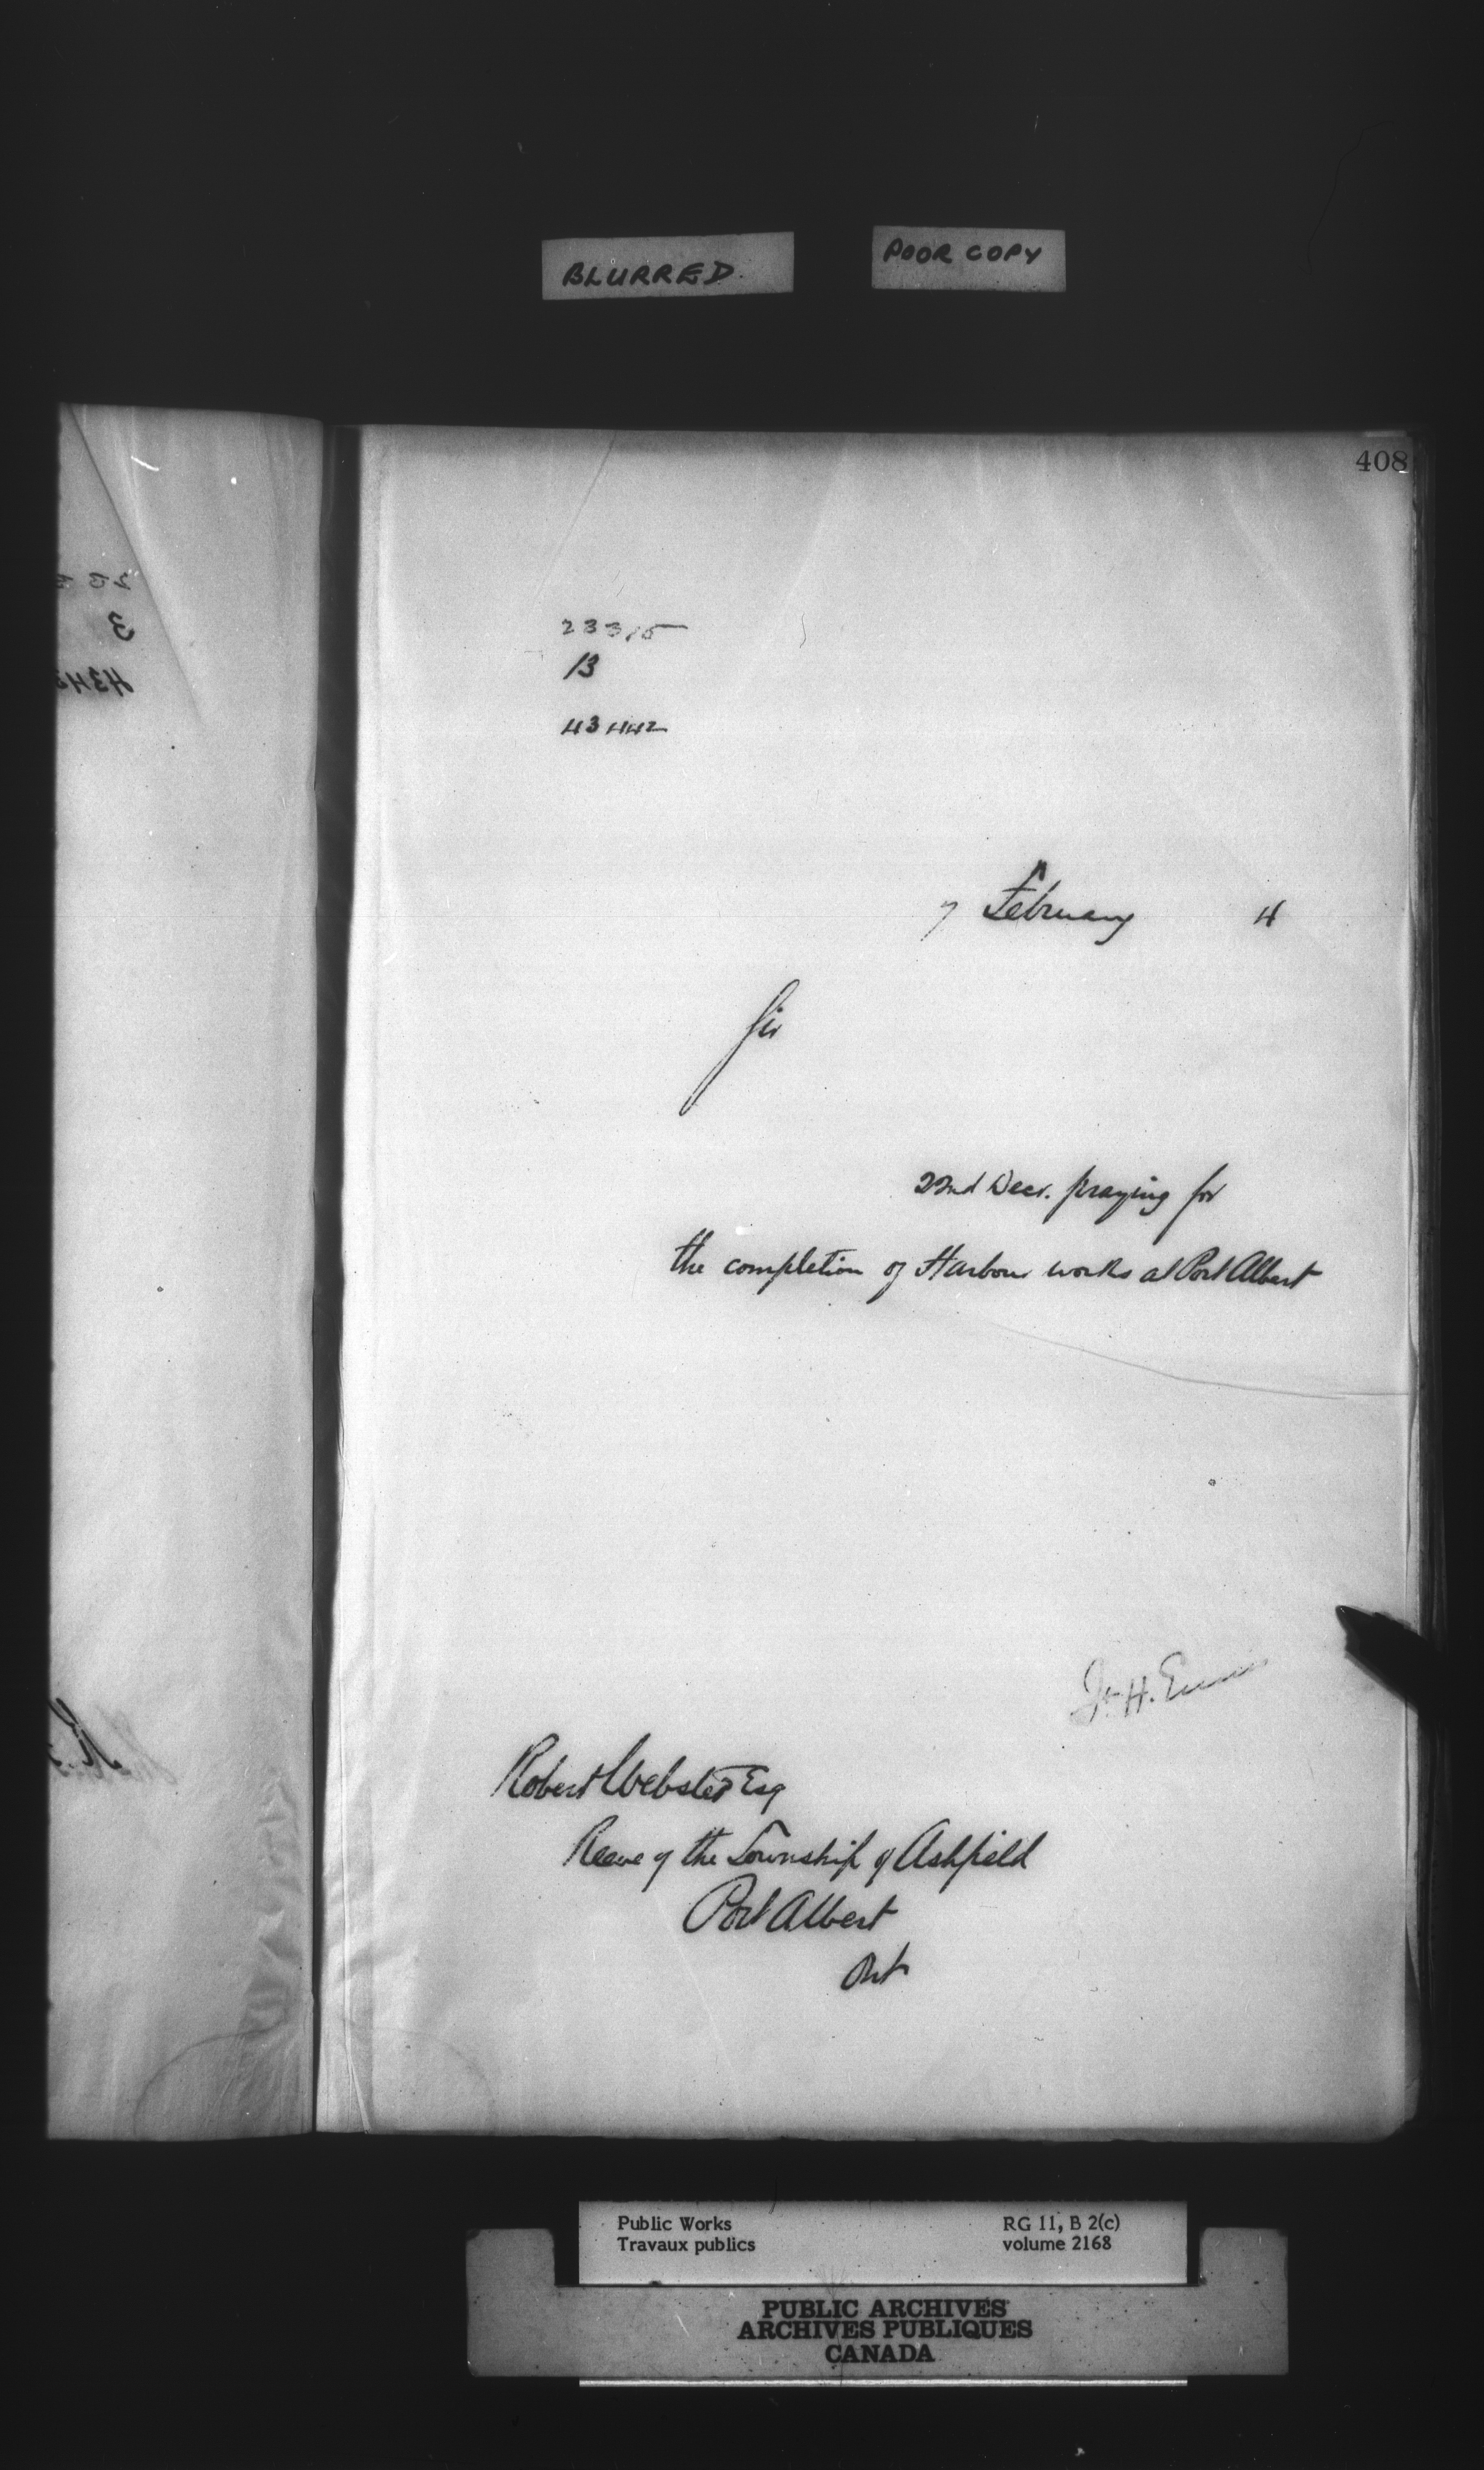 BLURRED.
POOR COPY
408
23315
13
43442
7 February 4
Sir
22nd Decr. praying for
the completion of Harbour works at Port Albert
H.
Robert Webster Esq
Reeve of the Township of Ashfield
Port Albert
Ont
Public Works
Travaux publics
RG 11, B 2(c)
volume 2168
PUBLIC ARCHIVES
ARCHIVES PUBLIQUES
CANADA